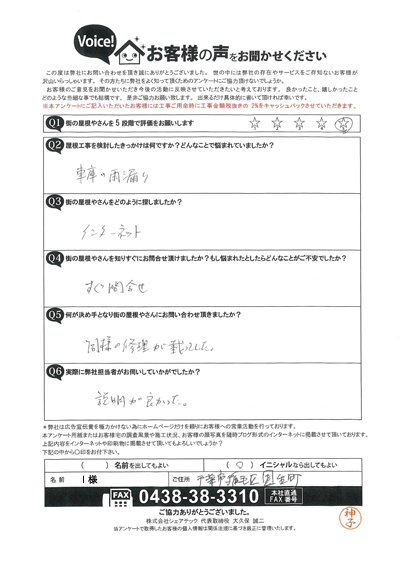 Voice!
お客様の声をお聞かせください
この度は弊社にお問い合わせを頂き誠にありがとうございました。世の中には弊社の存在やサービスをご存知ないお客様が
沢山いらっしゃいます。その方たちに弊社をよく知って頂くためのアンケートにご協力頂けないでしょうか。
お客様のご意見をお聞かせいただき今後の活動に反映させていただきたいと考えております。良かったこと、嬉しかったこと
どのような些細な事でも結構です。是非ご協力お願い致します。出来るだけ具体的に書いて頂ければ幸いです。
※本アンケートにご記入いただいたお客様には工事ご用命時に工事金額税抜きの 2%をキャッシュバックさせていただきます。
Q1 街の屋根やさんを5段階で評価をお願いします ☆ ☆ ☆ ☆ ☆
Q2 屋根工事を検討したきっかけは何ですか?どんなことで悩まれていましたか?
車庫の雨漏り
Q3 街の屋根やさんをどのように探しましたか?
インターネット
Q4 街の屋根やさんを知りすぐにお問合せ頂けましたか?もし悩まれたとしたらどんなことがご不安でしたか?
すぐ問合せ
Q5 何が決め手となり街の屋根やさんにお問い合わせ頂きましたか?
同様の修理が載ってました。
Q6 実際に弊社担当者がお伺いしていかがでしたか?
説明が良かった。
*弊社は広告宣伝費を極力かけない為にホームページだけを頼りにお客様への営業活動を行っております。
本アンケート用紙またはお客様宅の調査風景や施工状況、お客様の顔写真を随時ブログ形式のインターネットに掲載させて頂いております。
上記内容をインターネットや印刷物に掲載させて頂いてもよろしいでしょうか?
下記の中から〇印をお付下さい。
( ) 名前を出してもよい ( 〇 ) イニシャルなら出してもよい
名前 I 様 ご住所 千葉市稲毛区園生町
FAX 0438-38-3310 本社直通 FAX番号
ご協力ありがとうございました。
株式会社シェアテック 代表取締役 大久保 誠二
当アンケートで取得したお客様の個人情報は関係法廷に基づき適正に管理いたします。